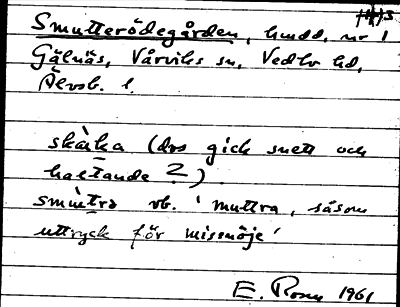 Smutterödegården, hmdd. nr 1
Gälnäs, Vårviks sn, Vedbo hd,
Älvsb. l.
skàka (dvs gick snett och
haltande ?)
smùttra vb. 'muttra, såsom
uttryck för missnöje'
E. Rosen 1961